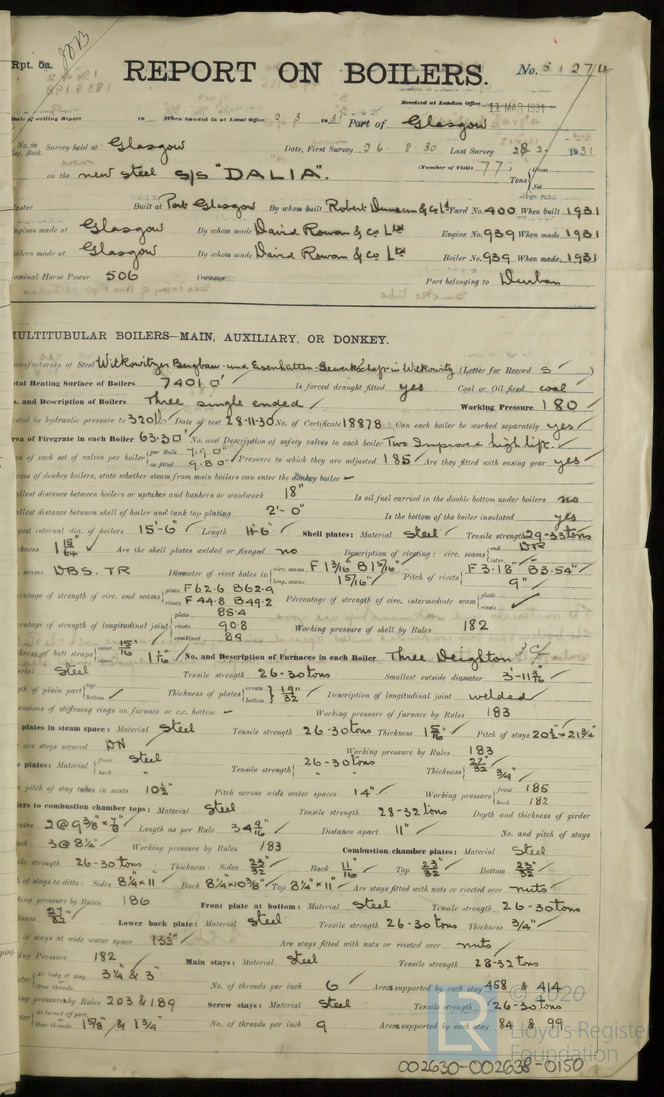 Rpt. 5a.
8893
REPORT ON BOILERS.
No. 51274
Received at London Office 11 MAR 1931
Date of writing Report 19 When handed in at Local Office 2 3 1931 Port of Glasgow
No. in Reg. Book. Survey held at Glasgow Date, First Survey 26. 8. 30 Last Survey 28. 2. 1931
on the new steel S/S "DALIA". (Number of Visits 77) Tons Gross Net
Built at Port Glasgow By whom built Robert Duncan & Co Ltd Yard No. 400 When built 1931
Engines made at Glasgow By whom made David Rowan & Co Ltd Engine No. 939 When made 1931
Boilers made at Glasgow By whom made David Rowan & Co Ltd Boiler No. 939 When made 1931
Nominal Horse Power 506 Owners Port belonging to Durban
MULTITUBULAR BOILERS—MAIN, AUXILIARY, OR DONKEY.
Manufacturers of Steel Witkowitzer Bergbau- und Eisenhütten-Gewerkschaft in Witkowitz (Letter for Record S)
Total Heating Surface of Boilers 7401 □' Is forced draught fitted yes Coal or Oil fired coal
No. and Description of Boilers Three single ended Working Pressure 180
Tested by hydraulic pressure to 320 lb Date of test 28-11-30 No. of Certificate 18878 Can each boiler be worked separately yes
Area of Firegrate in each Boiler 63.3 □' No. and Description of safety valves to each boiler Two Improved high lift
Area of each set of valves per boiler per Rule 7.9 □" as fitted 9.80 □" Pressure to which they are adjusted 185 Are they fitted with easing gear yes
case of donkey boilers, state whether steam from main boilers can enter the donkey boiler –
Smallest distance between boilers or uptakes and bunkers or woodwork 18" Is oil fuel carried in the double bottom under boilers no
Smallest distance between shell of boiler and tank top plating 2'-0" Is the bottom of the boiler insulated yes
Largest internal dia. of boilers 15'-6" Length 11'-6" Shell plates: Material Steel Tensile strength 29-33 tons
Thickness 1 15/64" Are the shell plates welded or flanged no Description of riveting: circ. seams end DR inter.
long. seams DBS. TR Diameter of rivet holes in circ. seams F 1 3/16" B 1 5/16" long. seams 1 5/16" Pitch of rivets F 3.18" B 3.54" 9"
Percentage of strength of circ. end seams plate F 62.6 B 62.9 rivets F 44.8 B 49.2 Percentage of strength of circ. intermediate seam plate rivets
Percentage of strength of longitudinal joint plate 85.4 rivets 90.8 combined 89 Working pressure of shell by Rules 182
Thickness of butt straps outer 15/16" inner 1 1/16" No. and Description of Furnaces in each Boiler Three Deighton 3 cf
Material Steel Tensile strength 26-30 tons Smallest outside diameter 3'-11 3/16"
Length of plain part top bottom Thickness of plates crown bottom 19/32" Description of longitudinal joint welded
Dimensions of stiffening rings on furnace or c.c. bottom – Working pressure of furnace by Rules 183
plates in steam space: Material Steel Tensile strength 26-30 tons Thickness 1 5/16" Pitch of stays 20 1/2" × 21 3/4"
are stays secured DN Working pressure by Rules 183
plates: Material front Steel back " Tensile strength 26-30 tons " " Thickness 27/32" 3/4"
pitch of stay tubes in nests 10 1/2" Pitch across wide water spaces 14" Working pressure front 186 back 182
Girders to combustion chamber tops: Material Steel Tensile strength 28-32 tons Depth and thickness of girder
centre 2 @ 9 3/8" × 7/8" Length as per Rule 34 9/16" Distance apart 11" No. and pitch of stays
each 3 @ 8 1/4" Working pressure by Rules 183 Combustion chamber plates: Material Steel
Tensile strength 26-30 tons Thickness: Sides 23/32" Back 11/16" Top 23/32" Bottom 23/32"
Pitch of stays to ditto: Sides 8 1/4" × 11" Back 8 1/4" × 10 3/8" Top 8 1/4" × 11" Are stays fitted with nuts or riveted over nuts
Working pressure by Rules 186 Front plate at bottom: Material Steel Tensile strength 26-30 tons
Thickness 27/32" Lower back plate: Material Steel Tensile strength 26-30 tons Thickness 3/4"
Pitch of stays at wide water space 13 1/2" Are stays fitted with nuts or riveted over nuts
Working Pressure 182 Main stays: Material Steel Tensile strength 28-32 tons
Diameter At body of stay, Over threads 3 1/4" & 3" No. of threads per inch 6 Area supported by each stay 458 & 414
Working pressure by Rules 203 & 189 Screw stays: Material Steel Tensile strength 26-30 tons
Diameter At turned off part, Over threads 1 5/8" & 1 3/4" No. of threads per inch 9 Area supported by each stay 84 & 99
LR © 2020 Lloyd's Register Foundation
002630-002638-0150